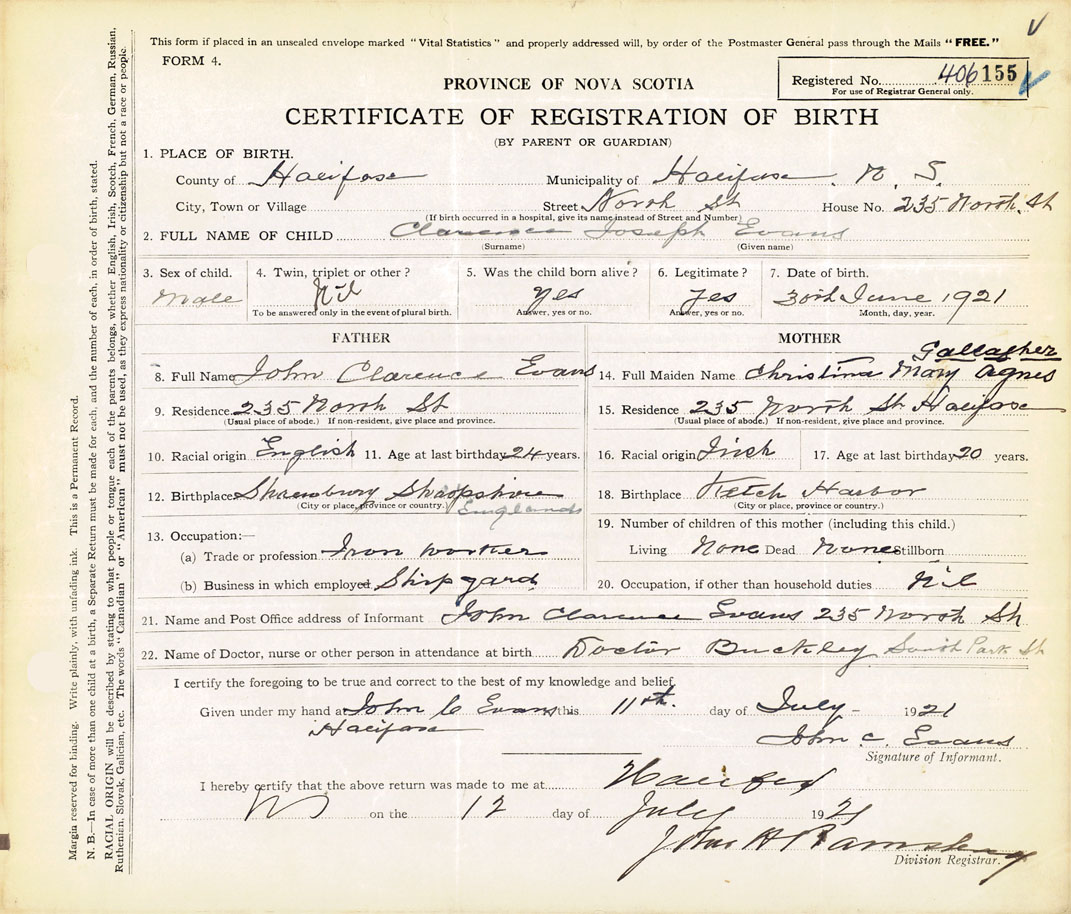 This form if placed in an unsealed envelope marked "Vital Statistics" and properly addressed will, by order of the Postmaster General pass through the Mails "FREE."
FORM 4.
Registered No. 406155
For use of Registrar General only.
PROVINCE OF NOVA SCOTIA
CERTIFICATE OF REGISTRATION OF BIRTH
(BY PARENT OR GUARDIAN)
1. PLACE OF BIRTH.
County of Halifax Municipality of Halifax. N. S.
City, Town or Village Street North St House No. 235 North. St
(If birth occurred in a hospital, give its name instead of Street and Number)
2. FULL NAME OF CHILD Clarence Joseph Evans
(Surname) (Given name)
3. Sex of child. 4. Twin, triplet or other? 5. Was the child born alive? 6. Legitimate? 7. Date of birth.
Male Nil yes yes 30th June 1921
To be answered only in the event of plural birth. Answer, yes or no. Answer, yes or no. Month, day, year.
FATHER MOTHER
Gallagher
8. Full Name John Clarence Evans 14. Full Maiden Name Christina Mary Agnes
9. Residence 235 North St 15. Residence 235 North St Halifax
(Usual place of abode.) If non-resident, give place and province. (Usual place of abode.) If non-resident, give place and province.
10. Racial origin English 11. Age at last birthday 24 years. 16. Racial origin Irish 17. Age at last birthday 20 years.
12. Birthplace Shrewbury Shropshire 18. Birthplace Ketch Harbor
(City or place, province or country.) England (City or place, province or country.)
19. Number of children of this mother (including this child.)
13. Occupation:—
(a) Trade or profession Iron worker Living None Dead None Stillborn
(b) Business in which employed Shipyard 20. Occupation, if other than household duties Nil
21. Name and Post Office address of Informant John Clarence Evans 235 North St
22. Name of Doctor, nurse or other person in attendance at birth Doctor Buckley South Park St
I certify the foregoing to be true and correct to the best of my knowledge and belief.
Given under my hand at John C Evans this 11th. day of July - 1921
Halifax
John C. Evans
Signature of Informant.
I hereby certify that the above return was made to me at Halifax
NS on the 12 day of July 1921
John H
Division Registrar.
Margin reserved for binding. Write plainly, with unfading ink. This is a Permanent Record.
N. B.—In case of more than one child at a birth, a Separate Return must be made for each, and the number of each, in order of birth, stated.
RACIAL ORIGIN will be described by stating to what people or tongue each of the parents belongs, whether English, Irish, Scotch, French, German, Russian,
Ruthenian, Slovak, Galician, etc. The words "Canadian" or "American" must not be used, as they express nationality or citizenship but not a race or people.